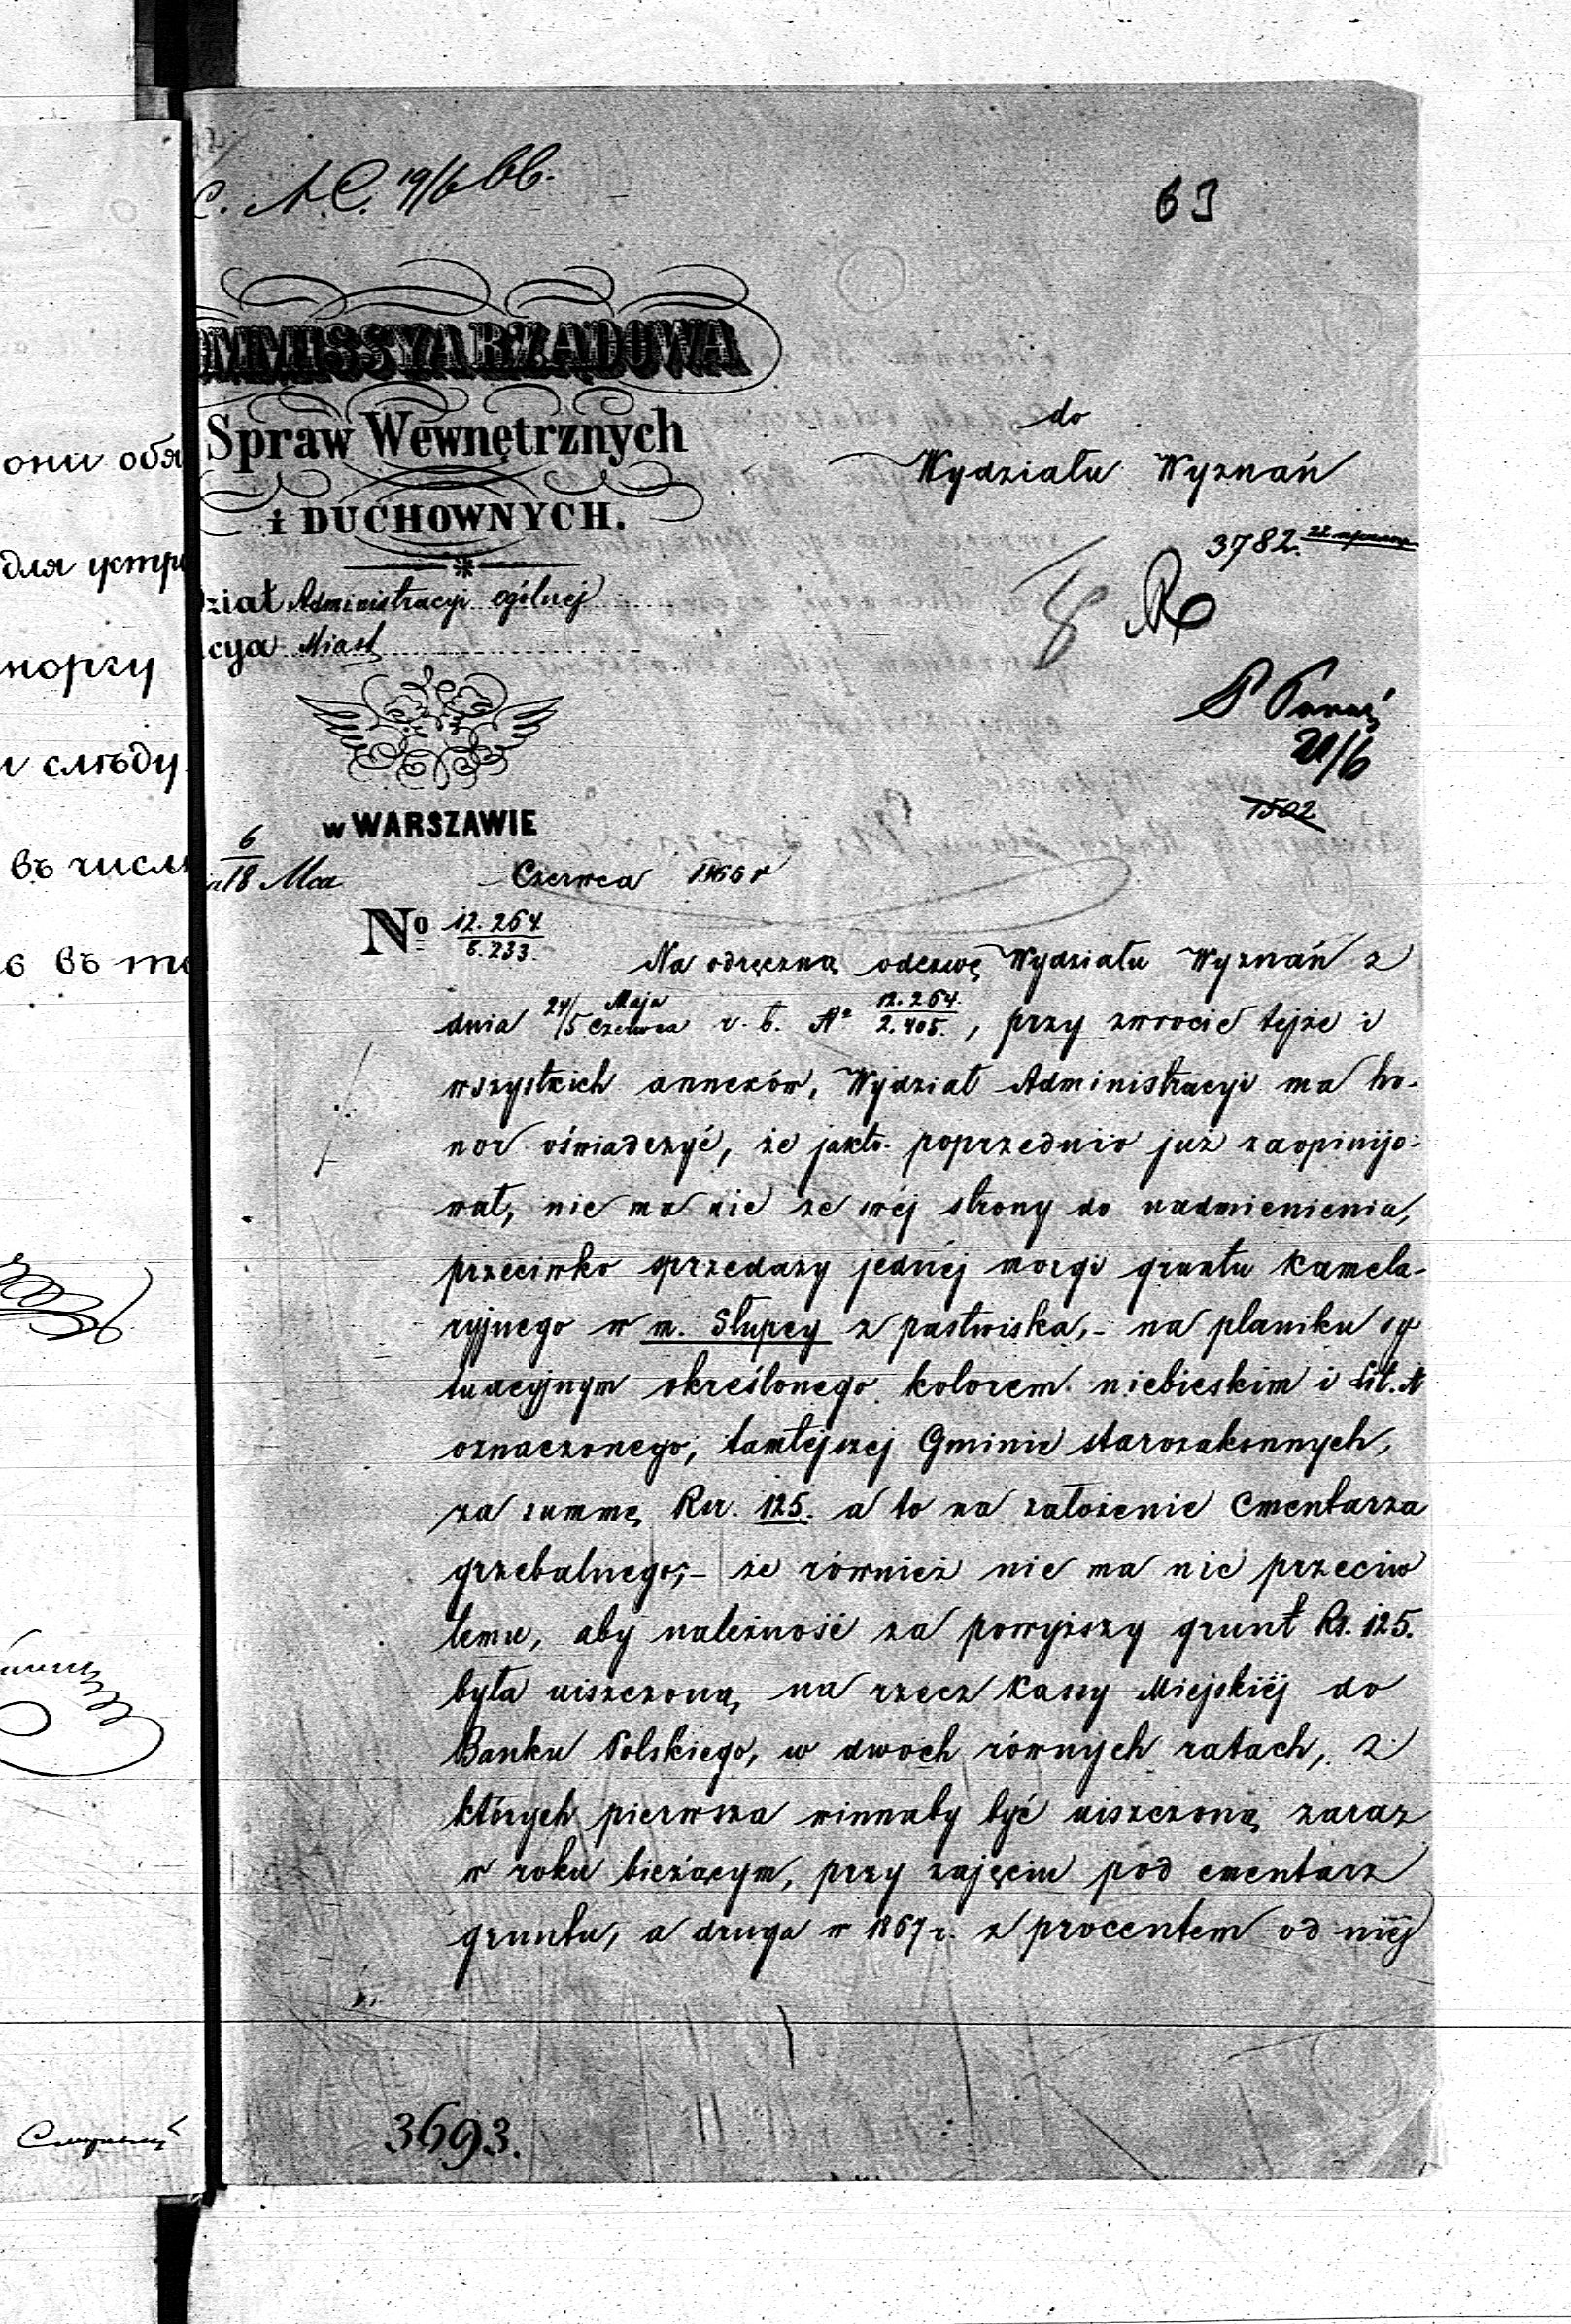 A. C. 19/6 66.
63
OMMISSYA RZĄDOWA
Spraw Wewnętrznych
i DUCHOWNYCH.
do
Wydziału Wyznań
3782.
dział Administracyi ogólnej
cya Miast
21/6
1502
w WARSZAWIE
6/18 Czerwca 1866 r
No 12.264/8.233.
Na odręczną odezwę Wydziału Wyznań z
dnia 24/5 Maja/Czerwca r. b. No 12.264/2.405., przy zwrocie tejże i
wszystkich annexów, Wydział Administracyi ma ho-
nor oświadczyć, że jakto poprzednio już zaopinijo-
wał, nie ma nic ze swéj strony do nadmienienia,
przeciwko sprzedaży jednéj morgi gruntu Kamela-
ryjnego w m. Słupcy z pastwiska,- na planiku sy
tuacyjnym określonego kolorem niebieskim i Lit. A
oznaczonego, tamtejszej Gminie starozakonnych,
za summę Rsr. 125. a to na założenie Cmentarza
grzebalnego;- że również nie ma nic przeciw
temu, aby należność za powyższy grunt Rs. 125.
była uiszczoną na rzecz Kassy Miejskiéj do
Banku Polskiego, w dwoch równych ratach, z
których pierwsza winnaby być uiszczoną zaraz
w roku bieżącym, przy zajęciu pod cmentarz
gruntu, a druga w 1867 r. z procentem od niéj
3693.
они обя
для устр
моргу
слѣду
въ числ
въ то